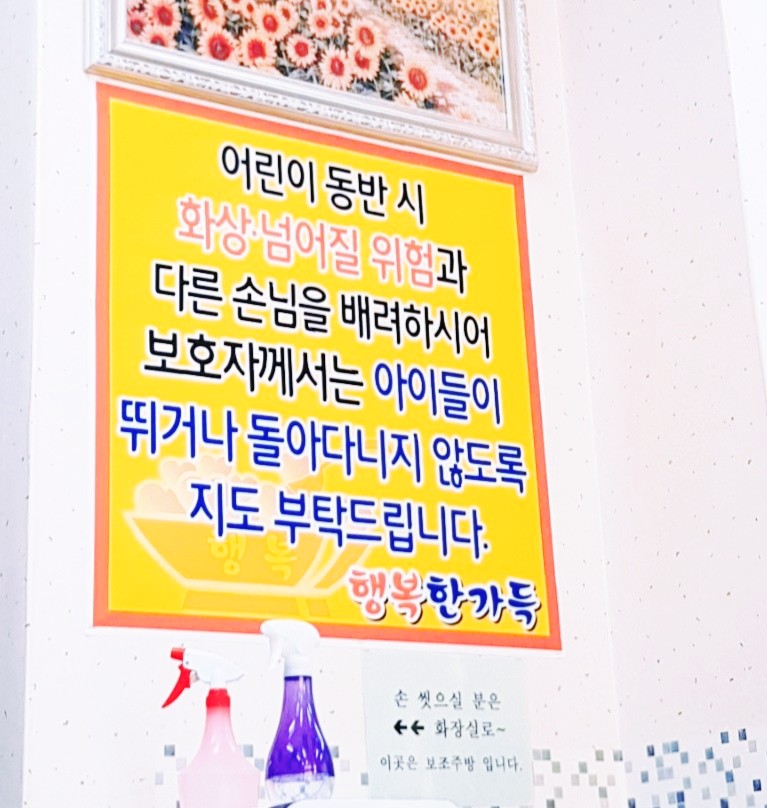 어린이 동반 시
화상·넘어질 위험과
다른 손님을 배려하시어
보호자께서는 아이들이
뛰거나 돌아다니지 않도록
지도 부탁드립니다.
행복
행복한가득
손 씻으실 분은
←← 화장실로~
이곳은 보조주방 입니다.